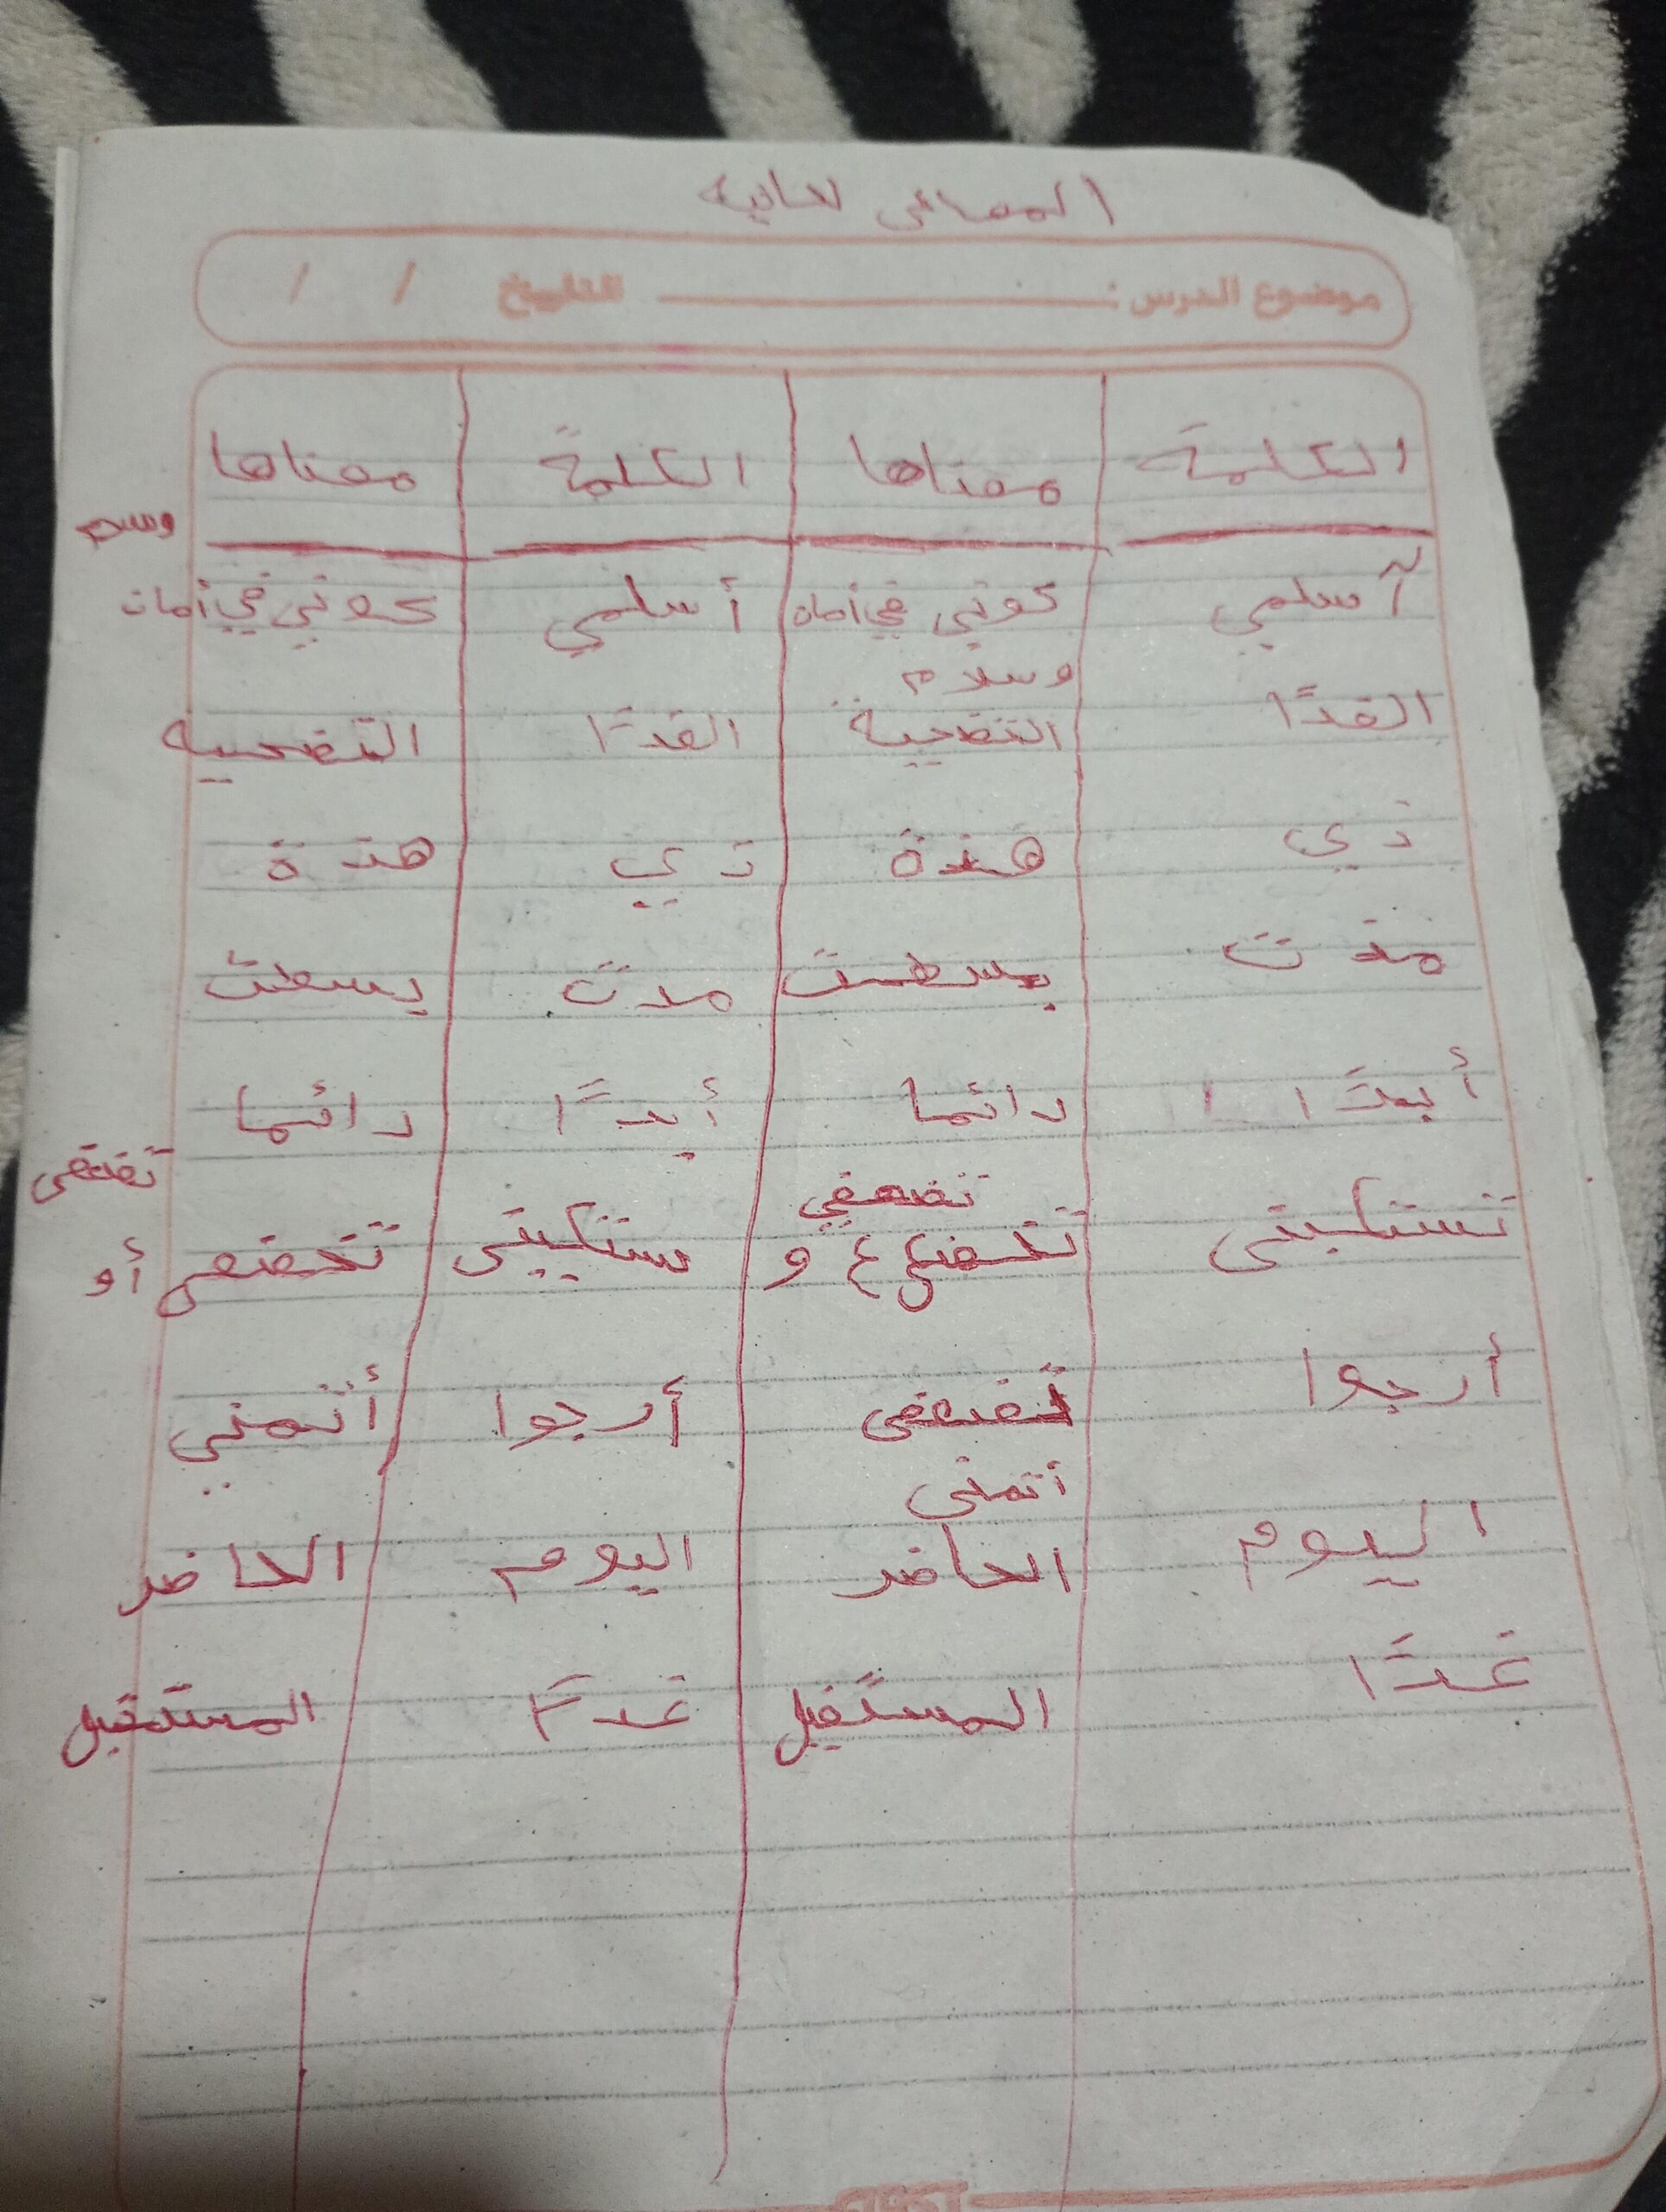 المعاني لغاية
موضوع الدرس : التاريخ / /
الكلمة معناها الكلمة معناها
أسلمي كوني في أمان أسلمي كوني في أمان وسلام
وسلام
القدًا التضحية القدًا التضحيه
ذي هذة ذي هذة
مدت بسطت مدت بسطت
أبدًا دائما أبدًا دائما
تستكيني تخضع و تضعفي ستكيني تخضعي أو تضعفى
أرجوا تضعفى أرجوا أتمني
أتمنى
اليوم الحاضر اليوم الحاضر
غدًا المستقبل غدًا المستقبل